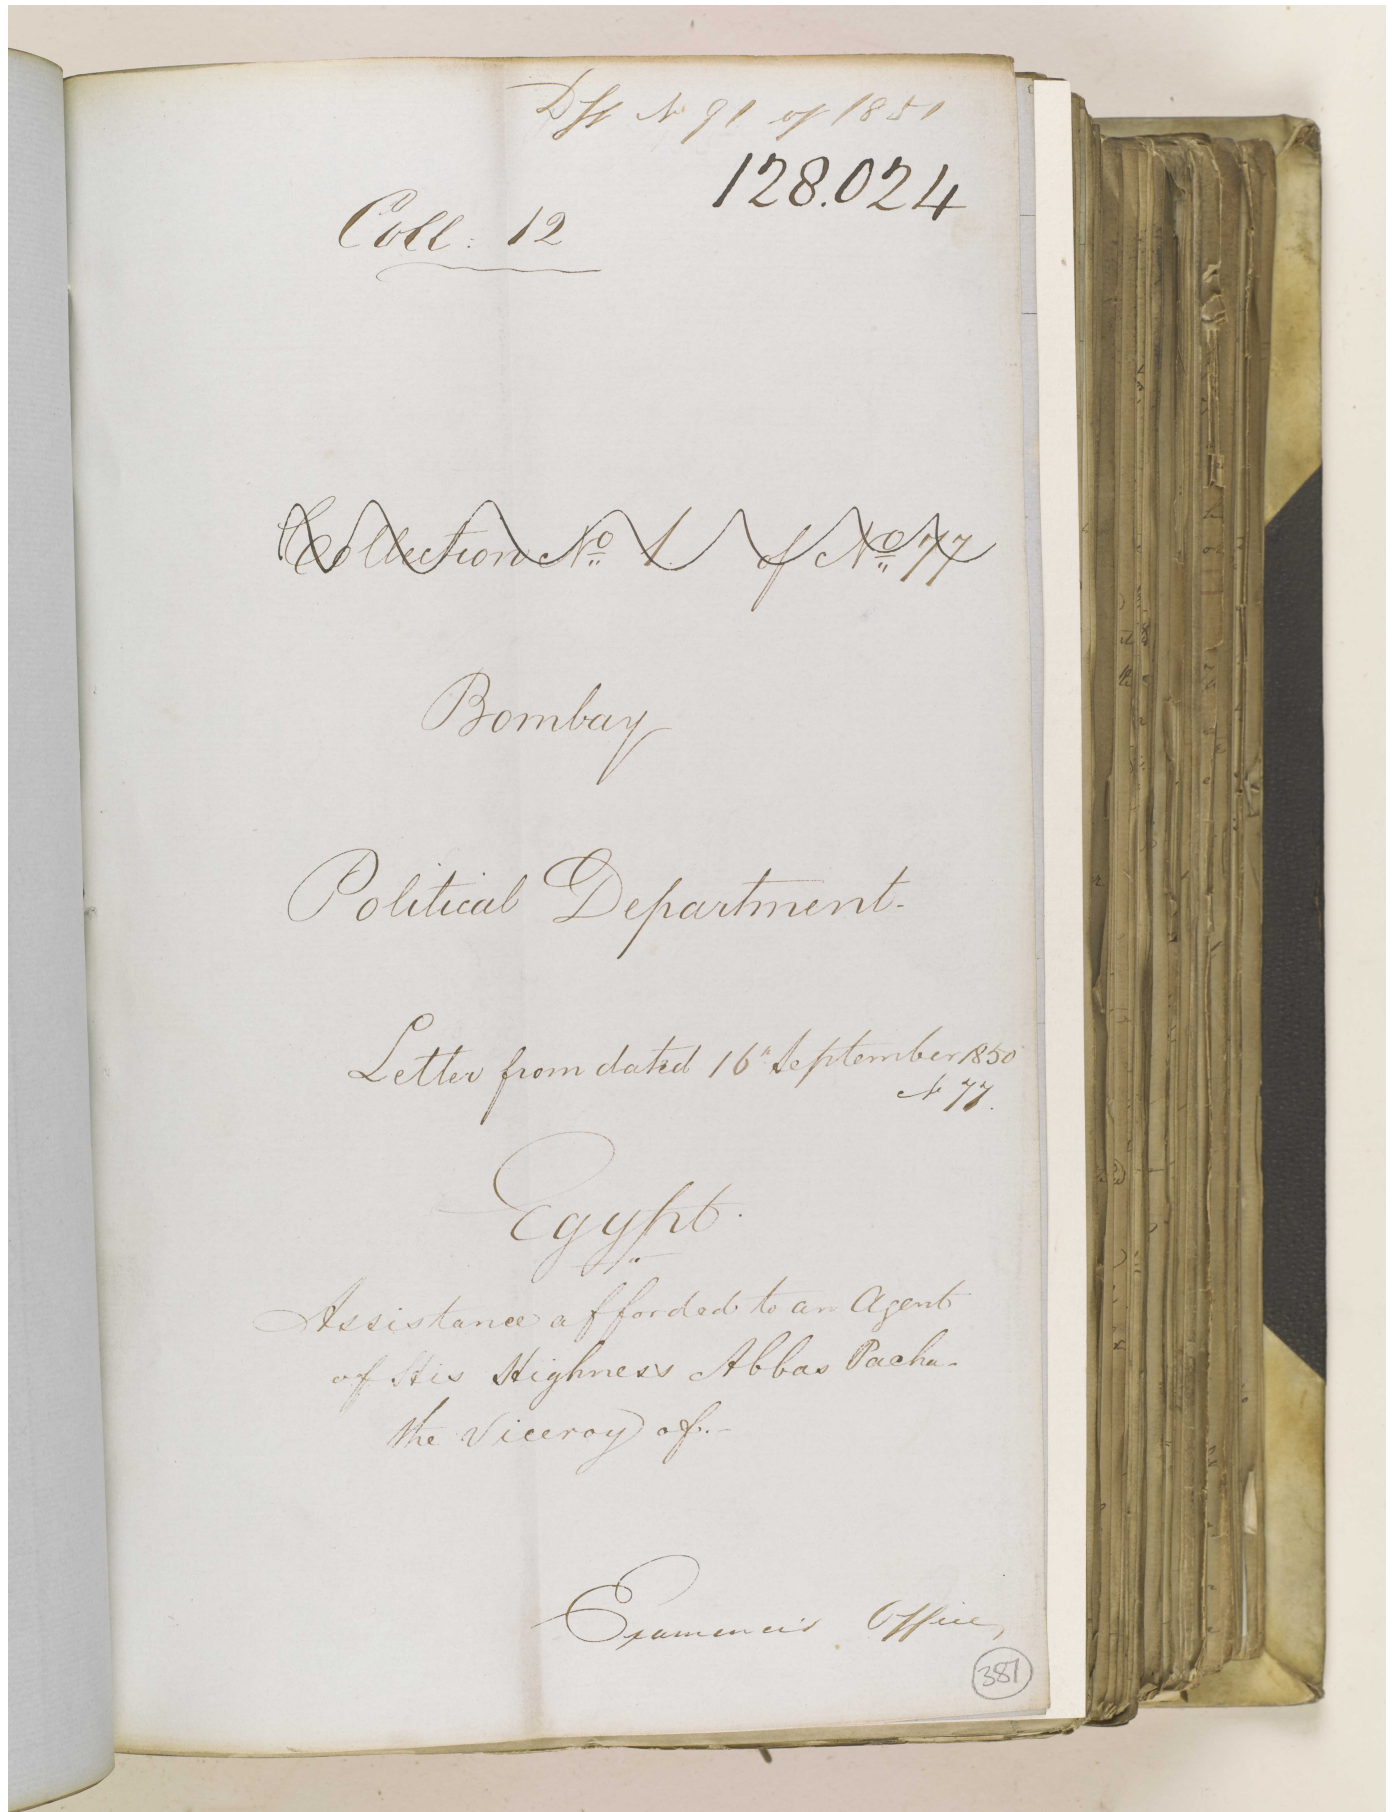 Dft N 91 of 1851
128.024
Coll: 12
Collection No 1. of No 77
Bombay
Political Department.
Letter from dated 16" September 1850
N 77.
Egypt.
Assistance afforded to an Agent
of His Highness Abbas Pacha
the Viceroy of.-
Examiner's Office,
387